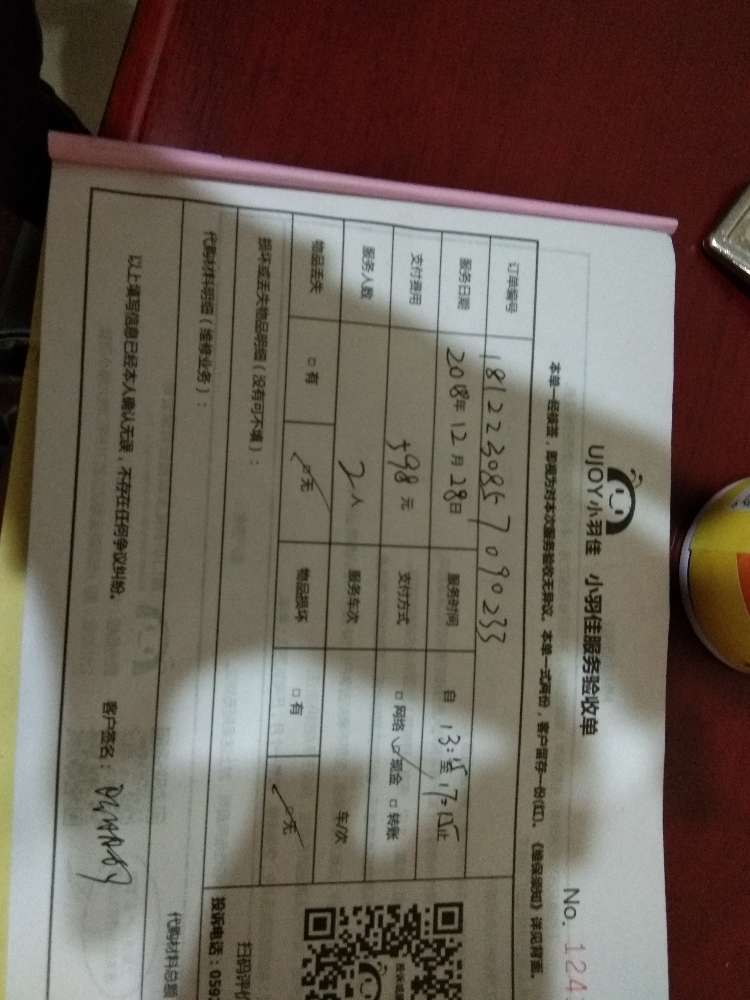 UJOY小羽佳 小羽佳服务验收单
No. 124
本单一经接签，即视为对本次服务验收无异议。本单一式两份，客户留存一份(红)。《维保须知》详见背面。
订单编号 181223085 7090233
服务日期 2018年12月28日 服务时间 自 13:15至 17:15止
支付费用 498 元 支付方式 □网络 ☑现金 □转账
服务人数 2人 服务车次 车/次
物品丢失 □有 ☑无 物品损坏 □有 ☑无
损坏或丢失物品明细（没有可不填）：
扫码评价
投诉电话：059
代购材料明细（维修业务）：
代购材料总额
以上填写信息已经本人确认无误，不存在任何争议纠纷。 客户签名：